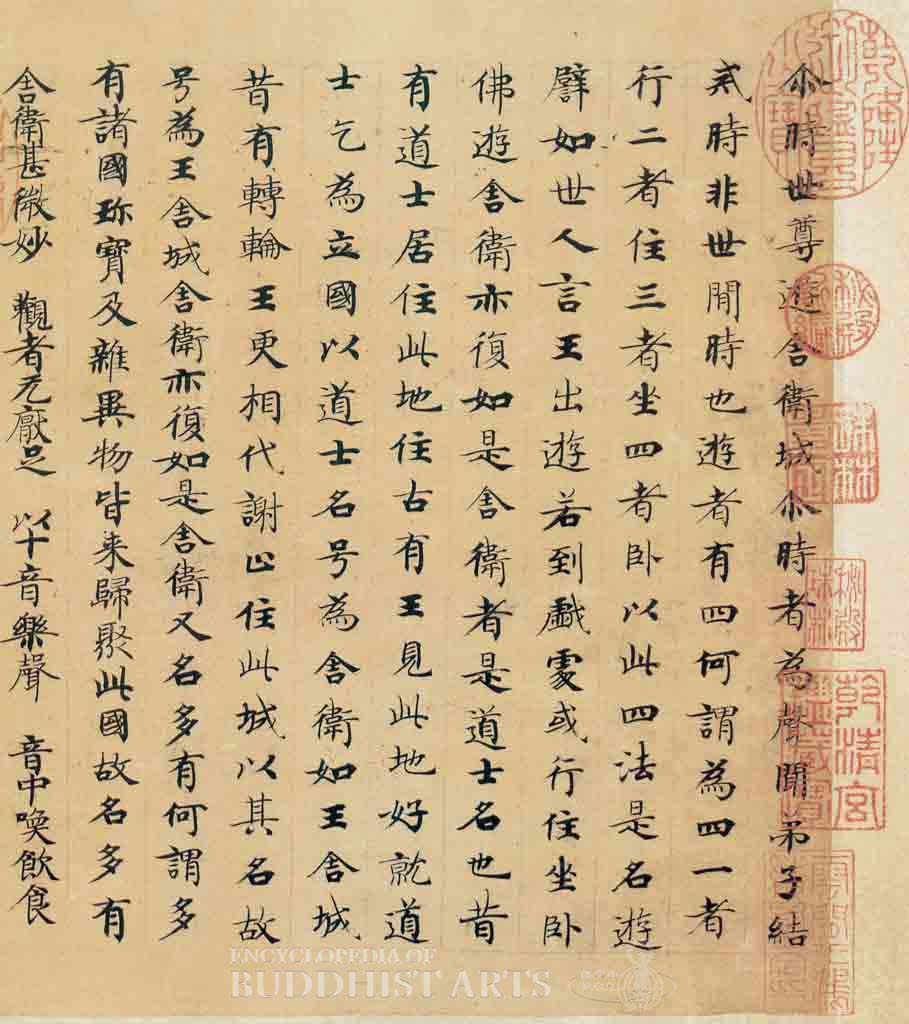 尒時世尊遊舍衛城尒時者為聲聞弟子結
戒時非世閒時也遊者有四何謂為四一者
行二者住三者坐四者卧以此四法是名遊
譬如世人言王出遊若到戲處或行住坐卧
佛遊舍衛亦復如是舍衛者是道士名也昔
有道士居住此地住古有王見此地好就道
士乞為立國以道士名号為舍衛如王舍城
昔有轉輪王更相代謝止住此城以其名故
号為王舍城舍衛亦復如是舍衛又名多有何謂多
有諸國珎寶及雜異物皆来歸聚此國故名多有
舍衛甚微妙 觀者无厭足 以十音樂聲 音中喚飲食
乾隆御覽之寶
秘殿新編
珠林重定
秘殿珠林
乾清宮鑒藏寶
ENCYCLOPEDIA OF
BUDDHIST ARTS